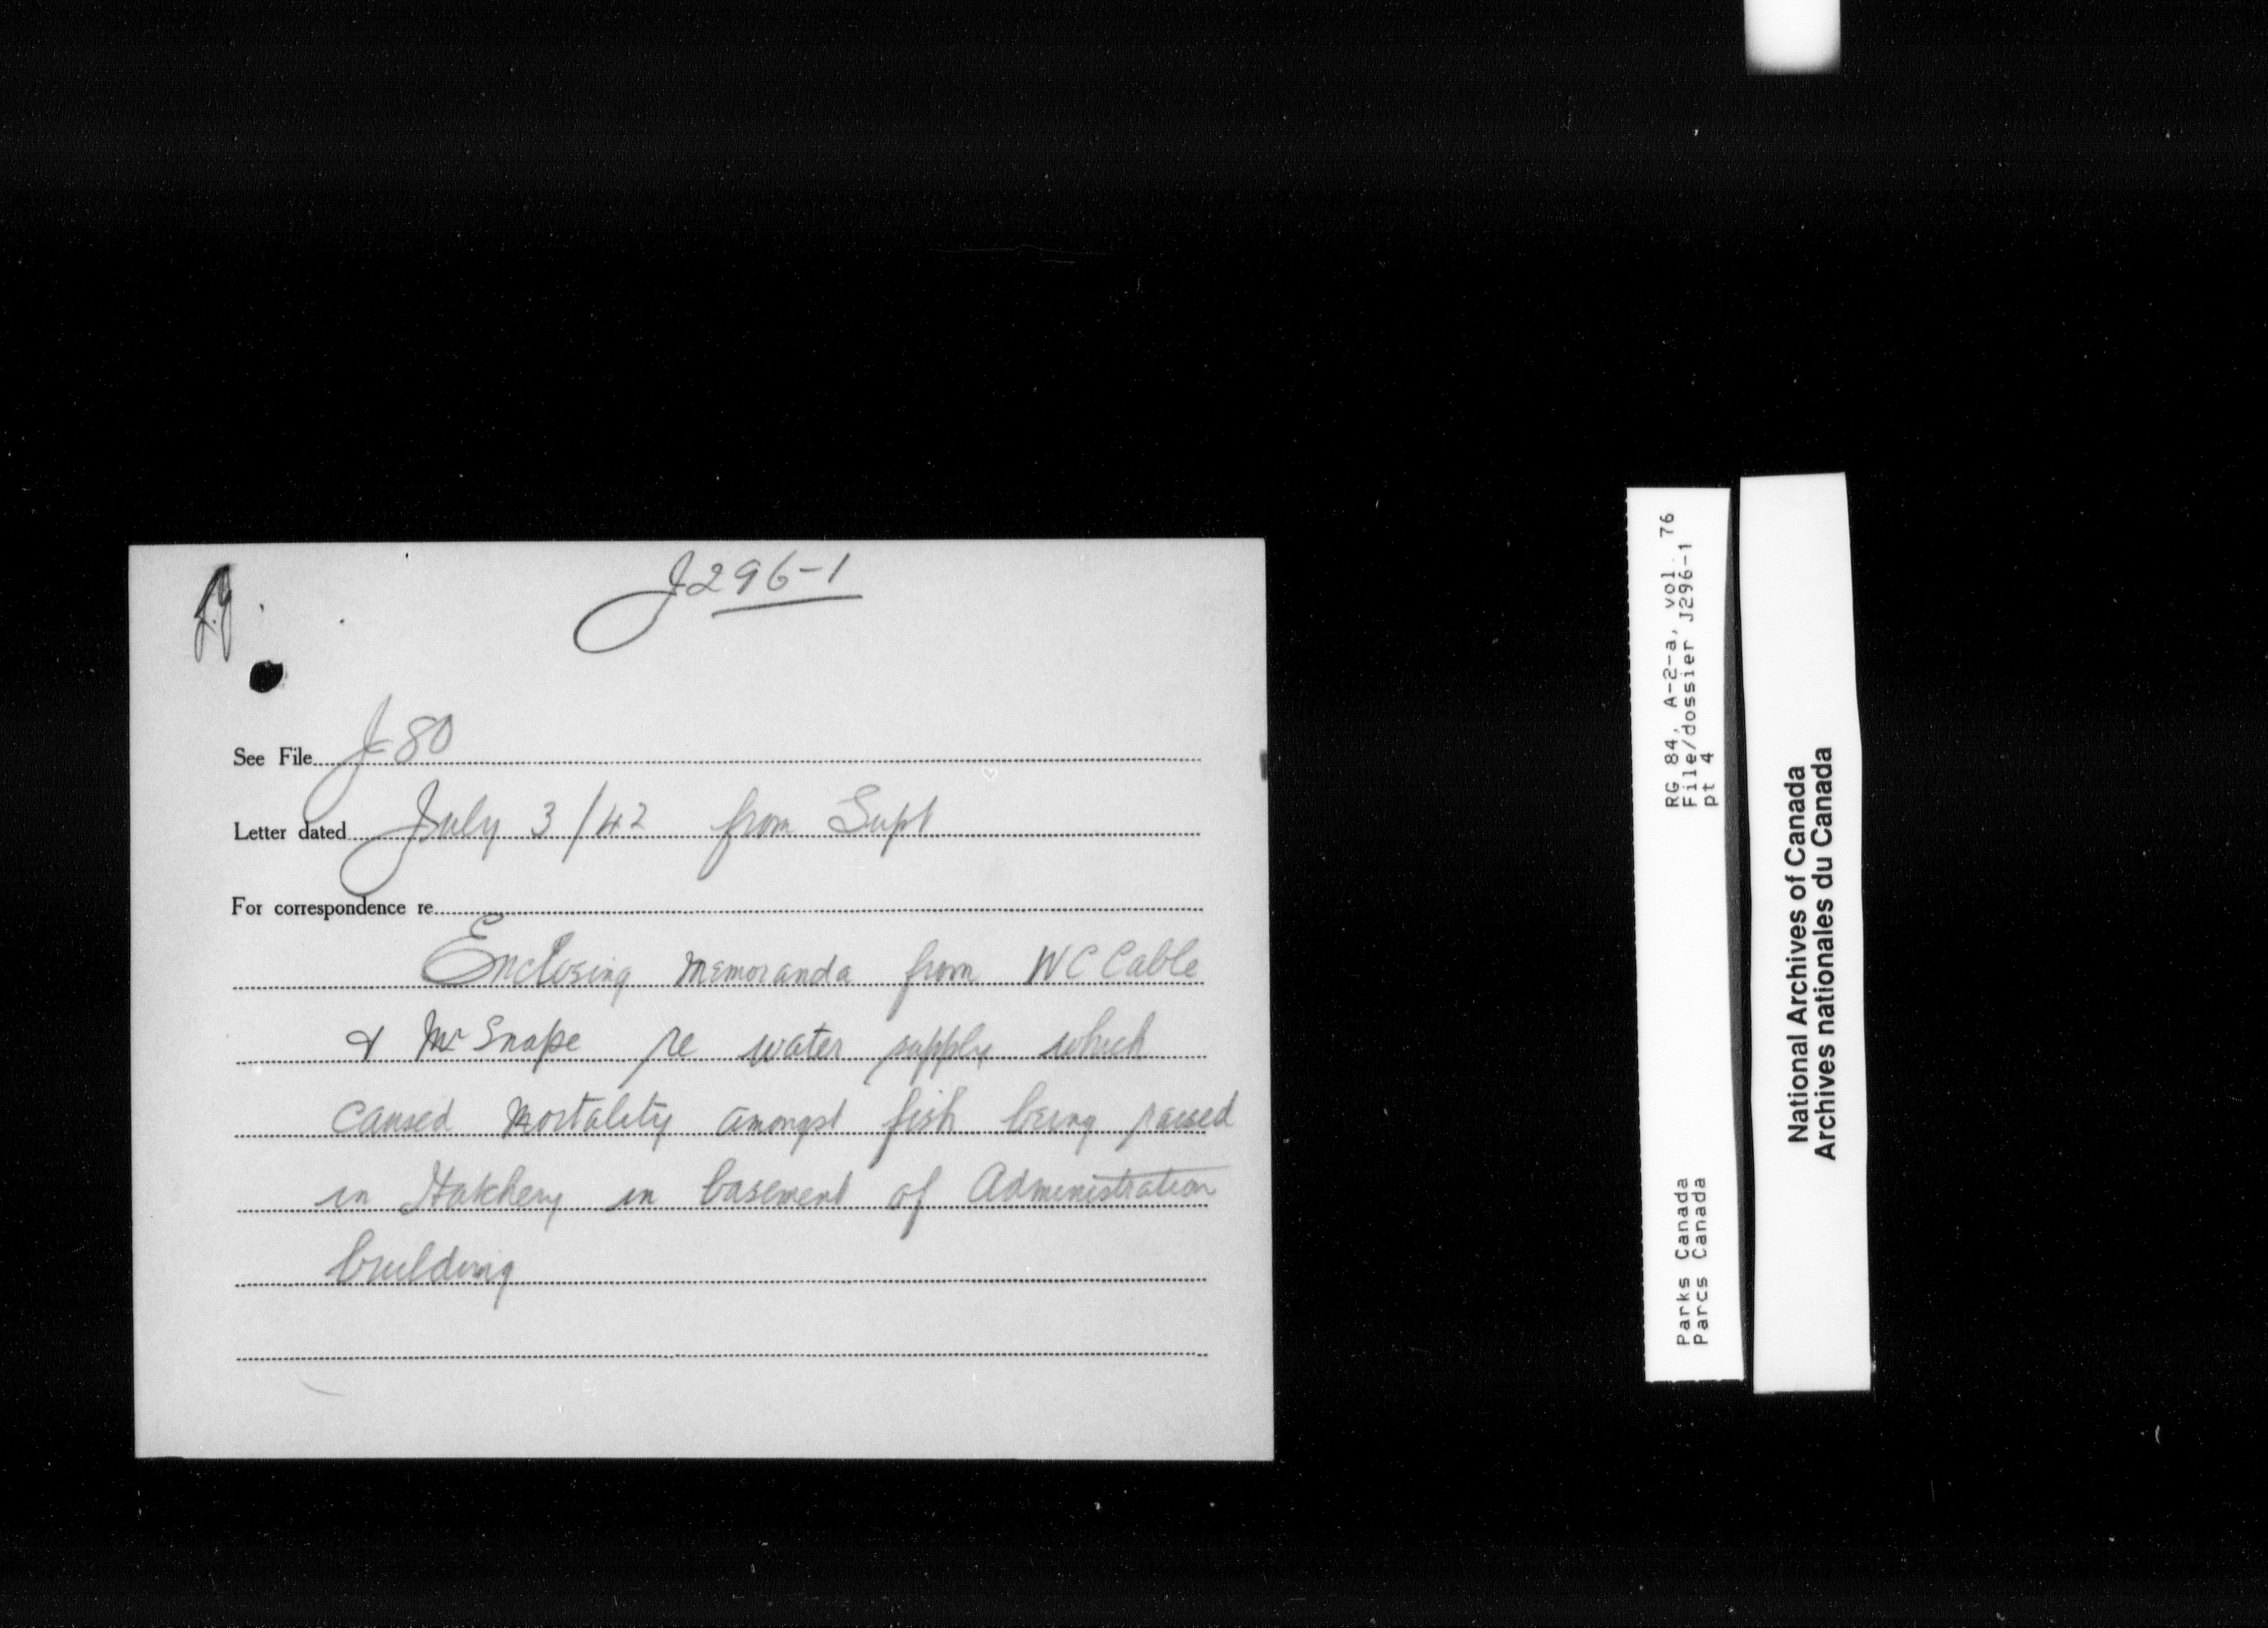 J296-1
See File J-80
Letter dated July 3/42 from Supt
For correspondence re
Enclosing memoranda from W C Cable
& Mr Snape re water supply which
caused mortality amongst fish being raised
in Hatchery in basement of Administration
building
RG 84, A-2-a, vol. 76
File/dossier J296-1
pt 4
Parks Canada
Parcs Canada
National Archives of Canada
Archives nationales du Canada